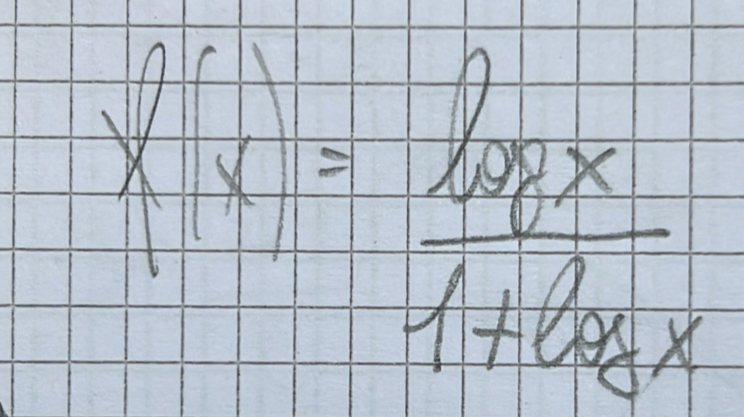 f(x) = log x / 1 + log x